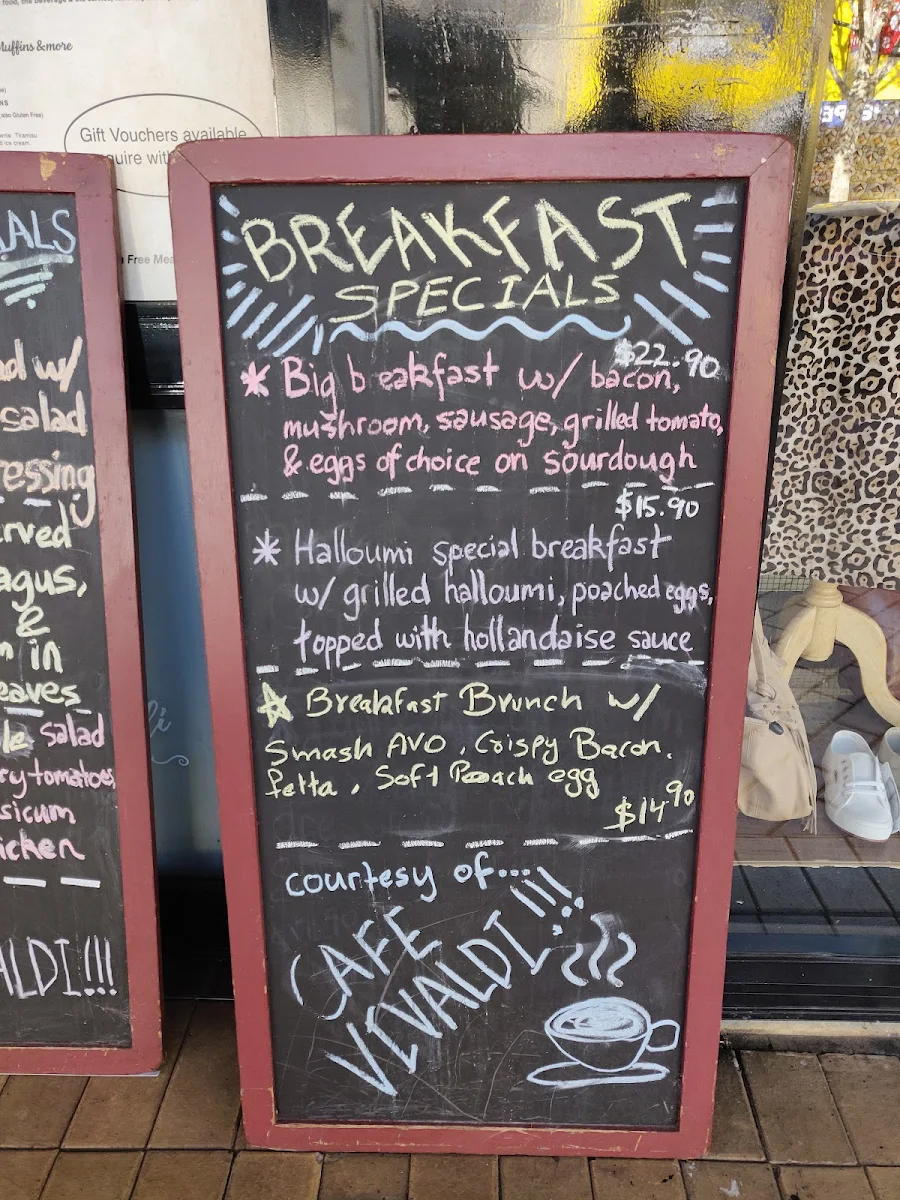 Muffins & more
(also Gluten Free)
Gift Vouchers available
Free Mea
IALS
ad w/
salad
essing
rved
agus,
&
n in
eaves
le salad
ry tomatoes,
sicum
icken
ALDI!!!
BREAKFAST
SPECIALS
$22.90
* Big b eakfast w/ bacon,
mushroom, sausage, grilled tomato,
& eggs of choice on sourdough
$15.90
* Halloumi special breakfast
w/ grilled halloumi, poached eggs,
topped with hollandaise sauce
Breakfast Brunch w/
Smash AVO, Crispy Bacon,
fetta, Soft Poach egg
$14.90
courtesy of...
CAFE
VIVALDI!!!